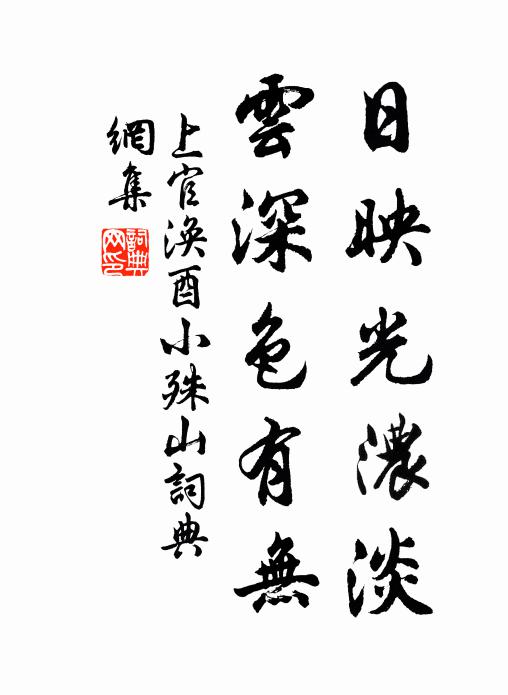 日映光濃淡
雲深色有無
上官渙酉小殊山詞典
網集
詞典網印